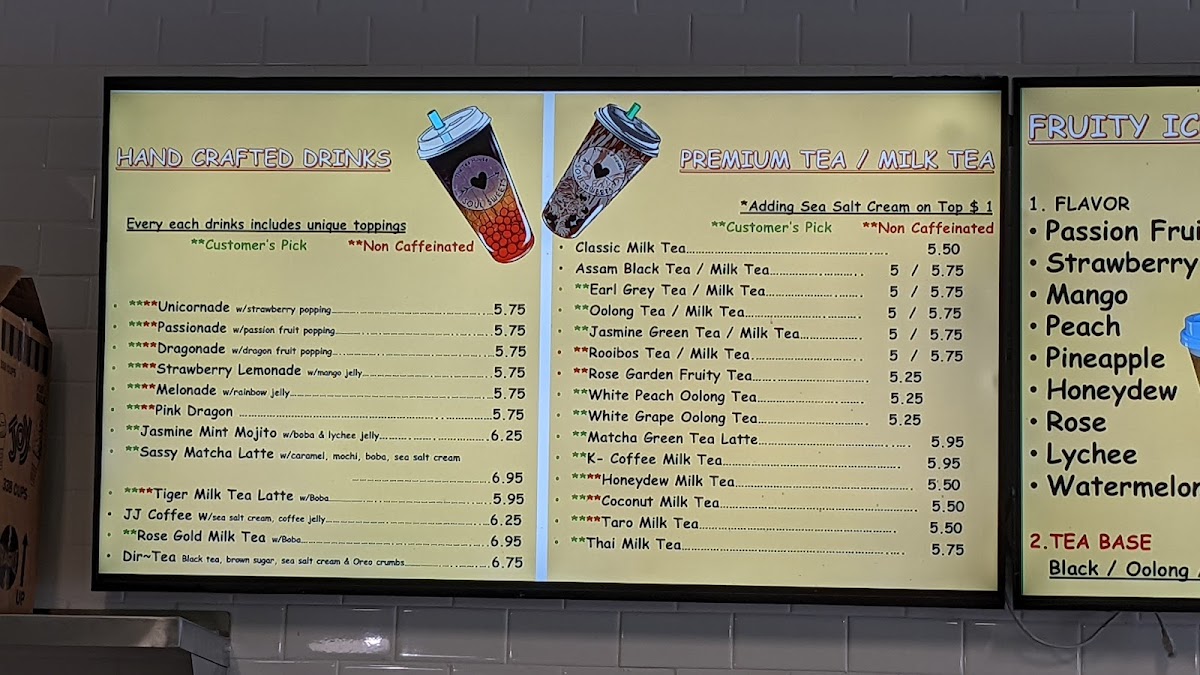 HAND CRAFTED DRINKS
Every each drinks includes unique toppings
**Customer's Pick **Non Caffeinated
• ****Unicornade w/strawberry popping 5.75
• ****Passionade w/passion fruit popping 5.75
• ****Dragonade w/dragon fruit popping 5.75
• ****Strawberry Lemonade w/mango jelly 5.75
• ****Melonade w/rainbow jelly 5.75
• ****Pink Dragon 5.75
• **Jasmine Mint Mojito w/boba & lychee jelly 6.25
• **Sassy Matcha Latte w/caramel, mochi, boba, sea salt cream
6.95
• ****Tiger Milk Tea Latte w/Boba 5.95
• JJ Coffee W/sea salt cream, coffee jelly 6.25
• **Rose Gold Milk Tea w/Boba 6.95
• Dir~Tea Black tea, brown sugar, sea salt cream & Oreo crumbs 6.75
SOUL SWEETS
PREMIUM TEA / MILK TEA
*Adding Sea Salt Cream on Top $ 1
**Customer's Pick **Non Caffeinated
• Classic Milk Tea 5.50
• Assam Black Tea / Milk Tea 5 / 5.75
• **Earl Grey Tea / Milk Tea 5 / 5.75
• **Oolong Tea / Milk Tea 5 / 5.75
• **Jasmine Green Tea / Milk Tea 5 / 5.75
• **Rooibos Tea / Milk Tea 5 / 5.75
• **Rose Garden Fruity Tea 5.25
• **White Peach Oolong Tea 5.25
• **White Grape Oolong Tea 5.25
• **Matcha Green Tea Latte 5.95
• **K- Coffee Milk Tea 5.95
• ****Honeydew Milk Tea 5.50
• ****Coconut Milk Tea 5.50
• ****Taro Milk Tea 5.50
• **Thai Milk Tea 5.75
FRUITY IC
1. FLAVOR
• Passion Frui
• Strawberry
• Mango
• Peach
• Pineapple
• Honeydew
• Rose
• Lychee
• Watermelon
2.TEA BASE
Black / Oolong
UP